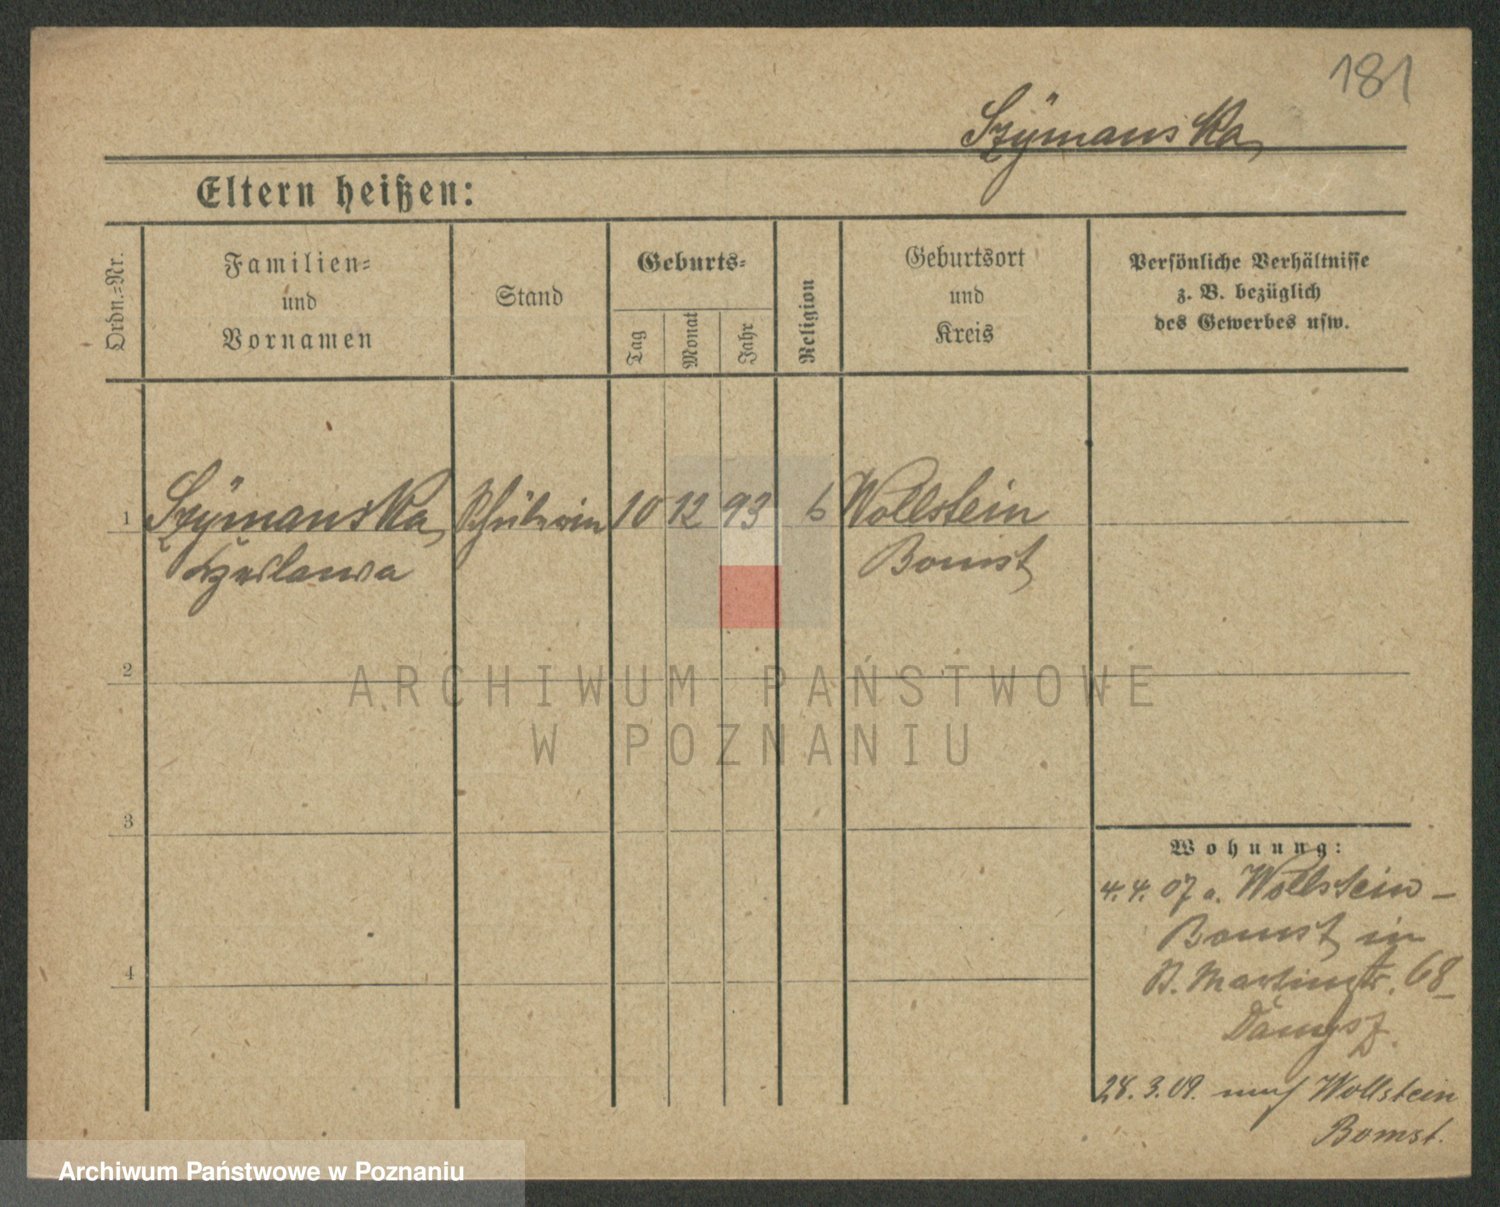 181
Szÿmanska
Eltern heißen:
Ordn.=Nr.
Familien=
und
Vornamen
Stand
Geburts=
Tag
Monat
Jahr
Religion
Geburtsort
und
Kreis
Persönliche Verhältnisse
z. B. bezüglich
des Gewerbes usw.
1
Szÿmanska
Schülerin
10
12
93
Wollstein
Czeslawa
Bomst
2
ARCHIWUM PAŃSTWOWE
W POZNANIU
3
4
Wohnung:
4.4.07 a. Wollstein -
Bomst in
St. Martinstr. 68
28.3.09. nach Wollstein
Bomst.
Archiwum Państwowe w Poznaniu